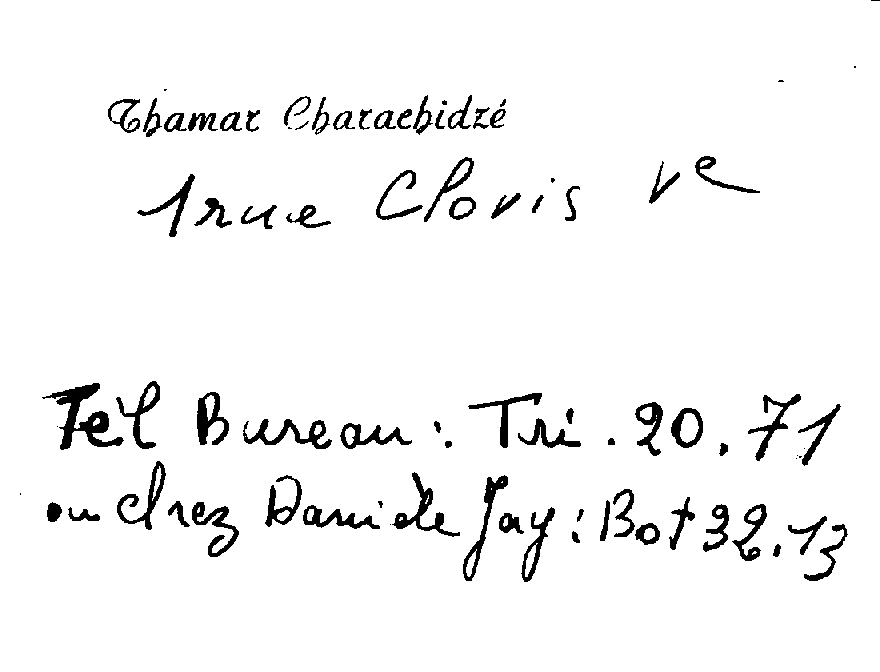 Thamar Charachidzé
1 rue Clovis Ve
Tél Bureau : Tri . 20 . 71
ou chez Danièle Jay : Bot 32.13